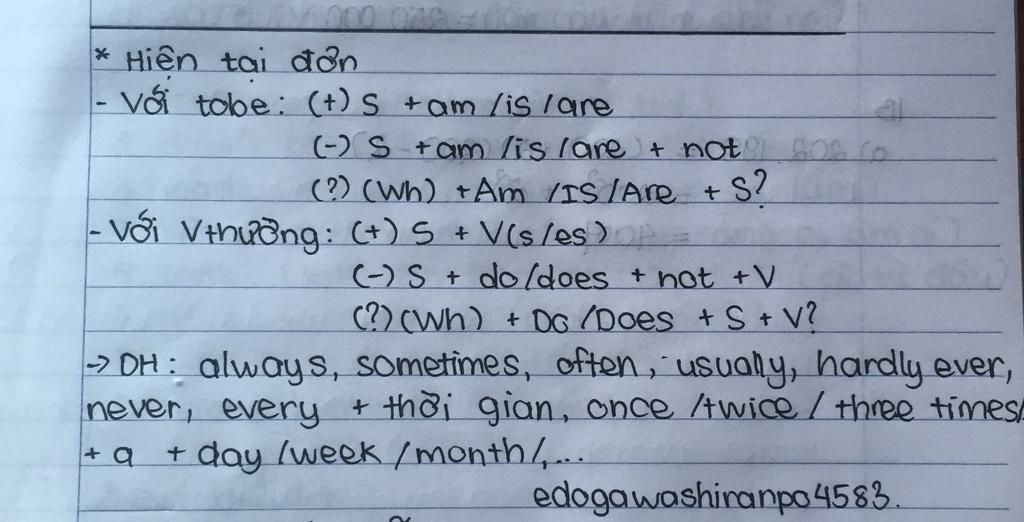 * Hiện tại đơn
- Với tobe: (+) S + am /is /are
(-) S + am /is /are + not
(?) (Wh) + Am /IS /Are + S?
- Với Vthường: (+) S + V(s/es)
(-) S + do/does + not + V
(?) (Wh) + Do /Does + S + V?
→ DH: always, sometimes, often, usually, hardly ever,
never, every + thời gian, once /twice / three times/
+ a + day /week /month/,...
edogawashiranpo4583.